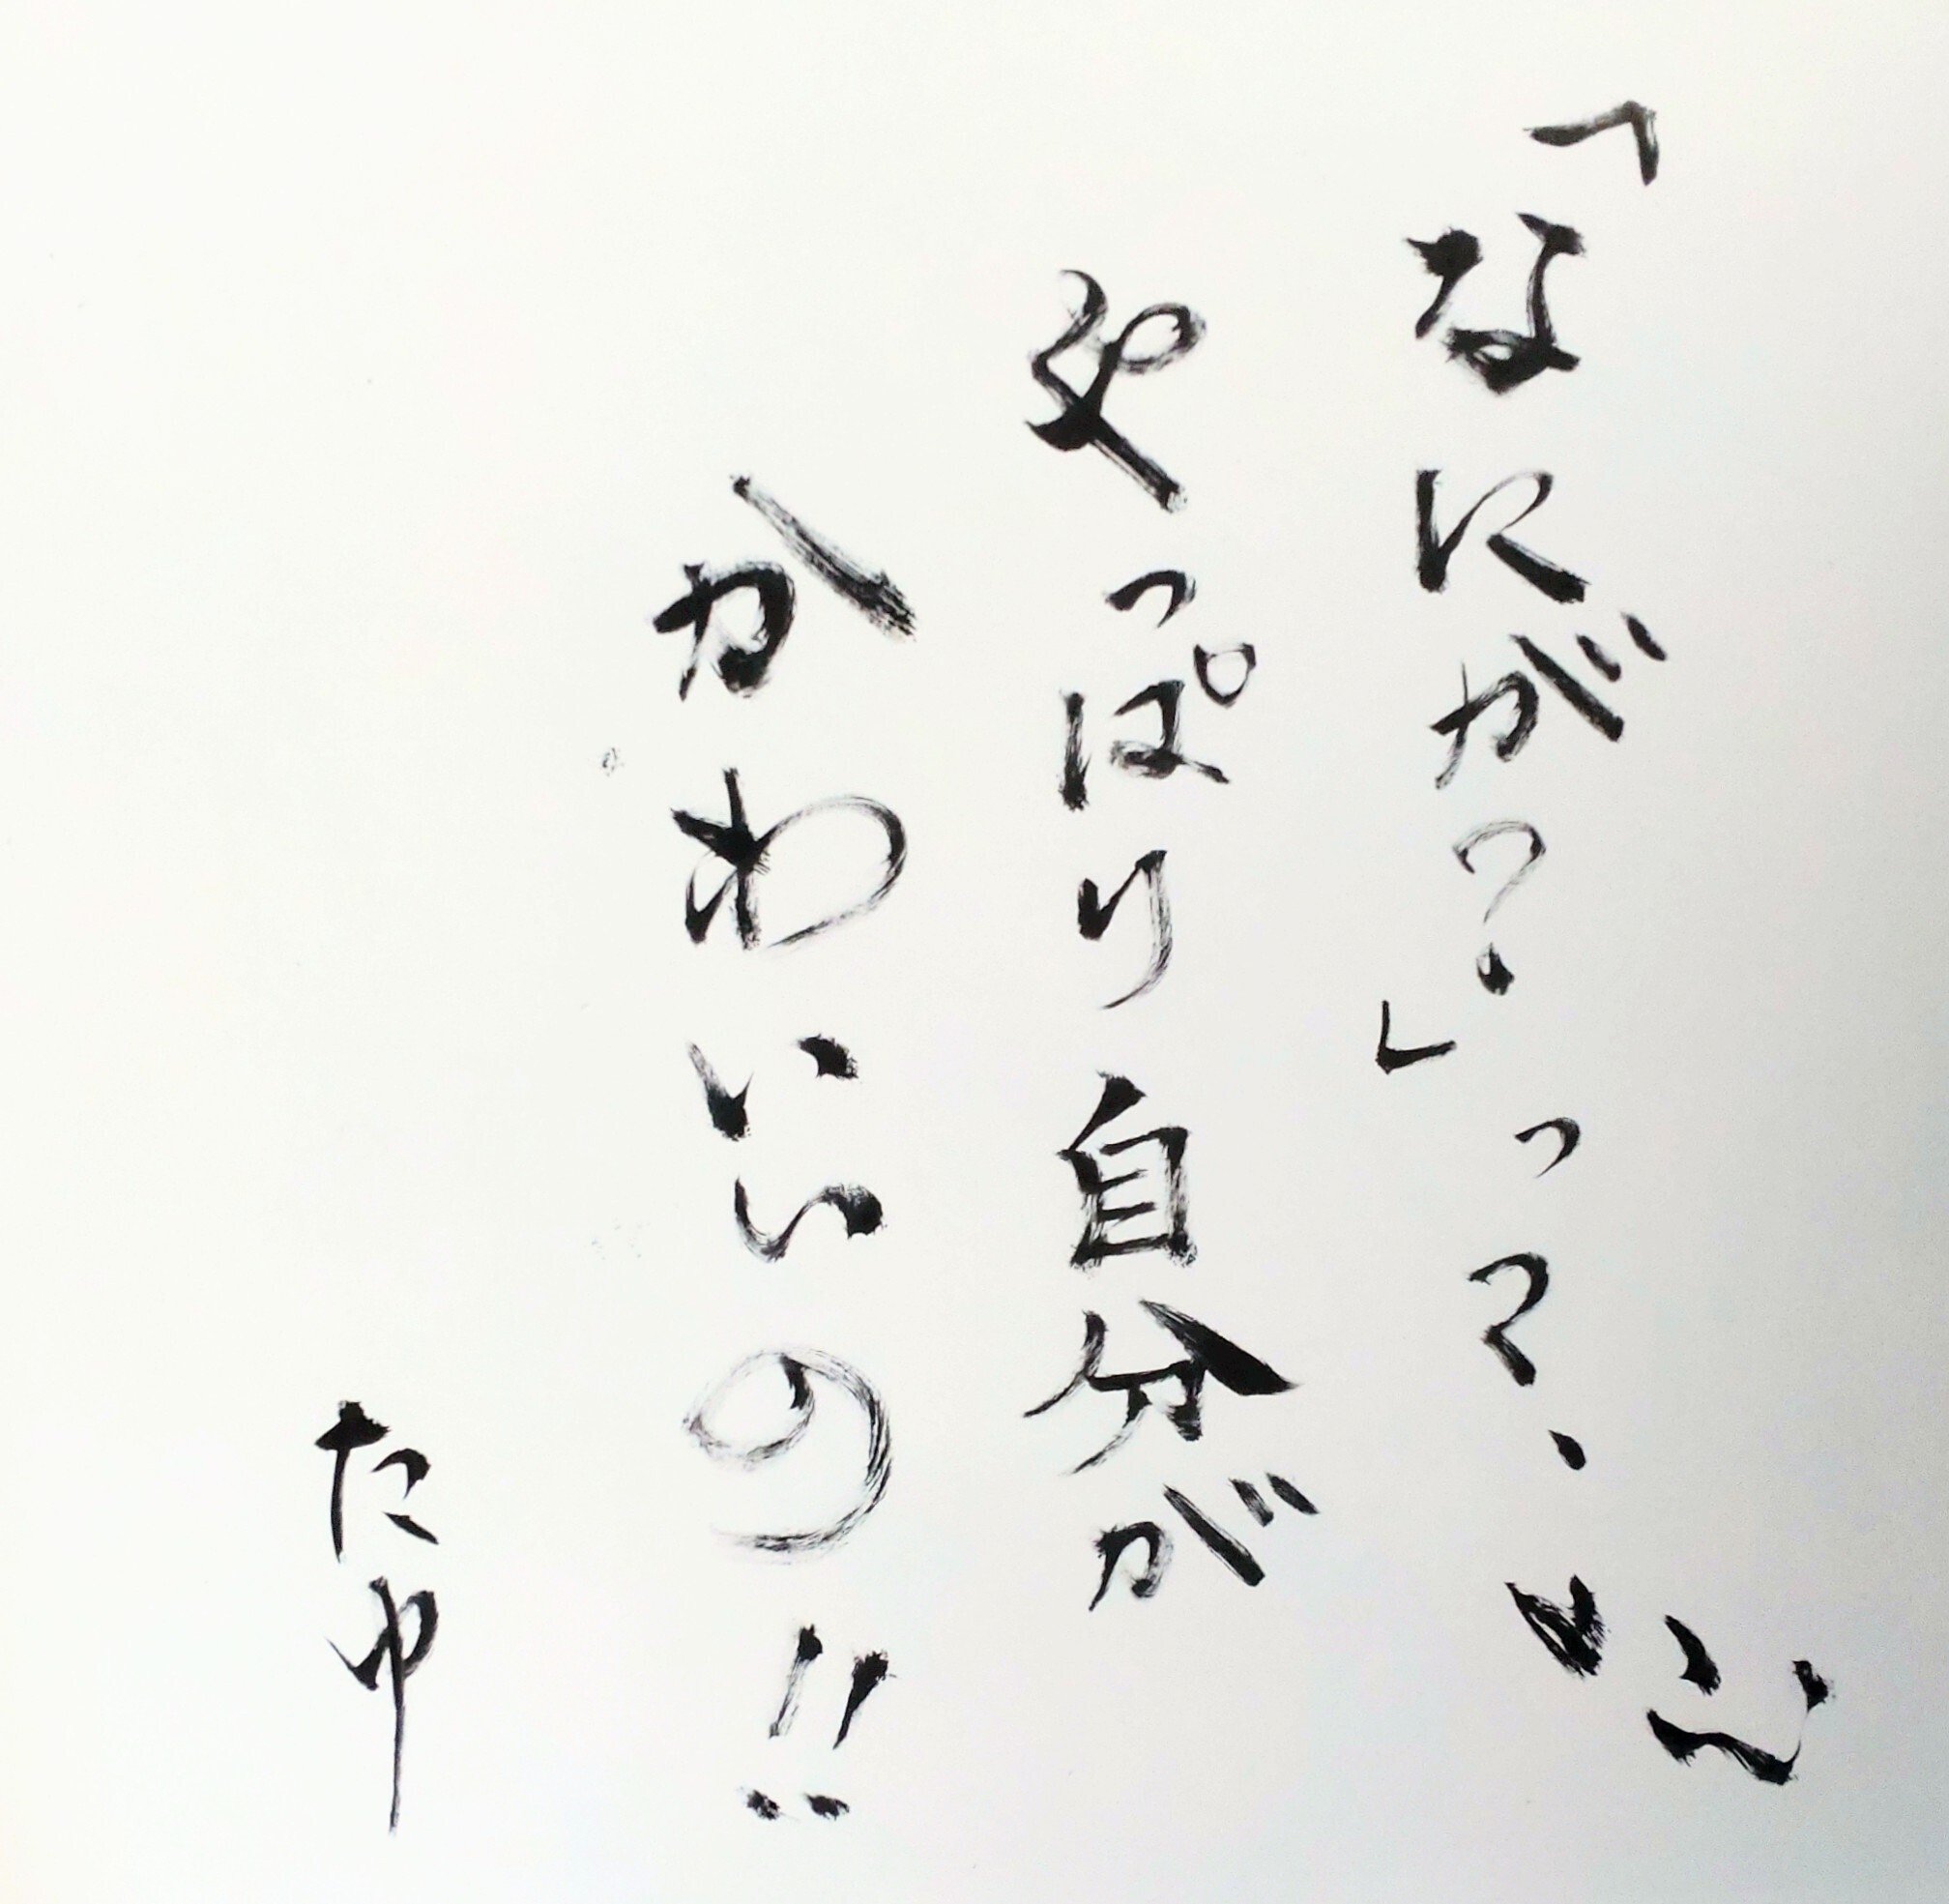 「なにが?」って、
やっぱり自分が
かわいいの!!
たゆ